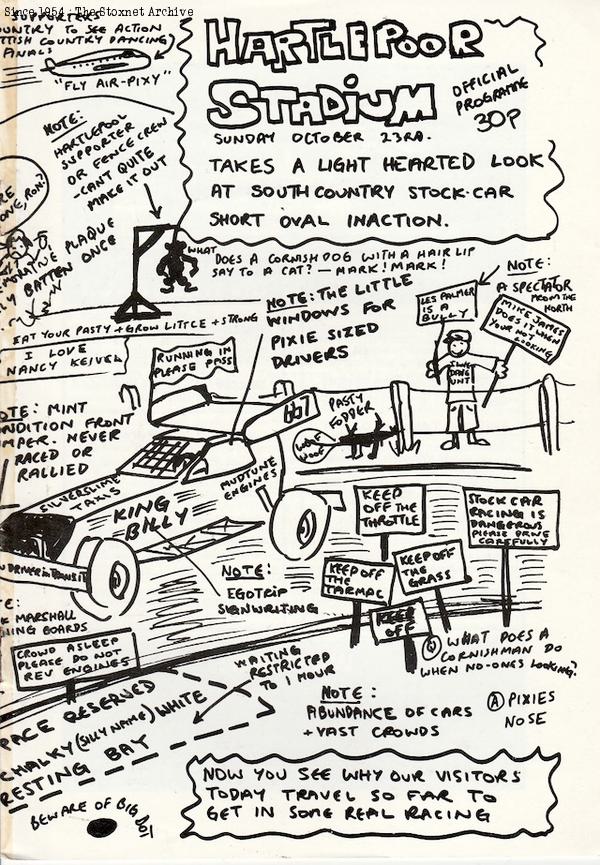 Since 1954 : The Stoxnet Archive
SUPPORTERS
OUNTRY TO SEE ACTION
TTISH COUNTRY DANCING)
ANALS
"FLY AIR-PIXY"
HARTLEPOOR
STADIUM
OFFICIAL
PROGRAMME
30P
SUNDAY OCTOBER 23RD.
TAKES A LIGHT HEARTED LOOK
AT SOUTH COUNTRY STOCK-CAR
SHORT OVAL INACTION.
NOTE:
HARTLEPOOL
SUPPORTER
OR FENCE CREW
-CANT QUITE
MAKE IT OUT
RE
ONE, RON?
MARATIVE PLAQUE
Y BATTEN ONCE
WHAT
DOES A CORNISH DOG WITH A HAIR LIP
SAY TO A CAT? - MARK! MARK!
NOTE:
A SPECTATOR
FROM THE
NORTH
LES PALMER
IS A
BULLY
MIKE JAMES
DOES IT WHEN
YOUR NOT
LOOKING
NOTE: THE LITTLE
WINDOWS FOR
PIXIE SIZED
DRIVERS
EAT YOUR PASTY + GROW LITTLE + STRONG
I LOVE
NANCY KEIVEL
RUNNING IN
PLEASE PASS
667
PASTY
FODDER
WOOF
WOOF
OTE: MINT
NDITION FRONT
MPER. NEVER
RACED OR
RALLIED
SILVERSLIME
TAXIS
KING
BILLY
MUDTUNE
ENGINES
DRIVER IN TRANSIT
KEEP
OFF THE
THROTTLE
STOCK CAR
RACING IS
DANGEROUS
PLEASE DRIVE
CAREFULLY
KEEP OFF
THE
TARMAC
KEEP OFF
THE
GRASS
KEEP
OFF
NOTE:
EGOTRIP
SIGNWRITING
TE:
K MARSHALL
NING BOARDS
CROWD ASLEEP
PLEASE DO NOT
REV ENGINES
WAITING
RESTRICTED
TO 1 HOUR
Q WHAT DOES A
CORNISHMAN DO
WHEN NO-ONES LOOKING?
A PIXIES
NOSE
NOTE:
ABUNDANCE OF CARS
+ VAST CROWDS
PACE RESERVED
CHALKY (SILLY NAME) WHITE
RESTING BAY
BEWARE OF BIG
NOW YOU SEE WHY OUR VISITORS
TODAY TRAVEL SO FAR TO
GET IN SOME REAL RACING